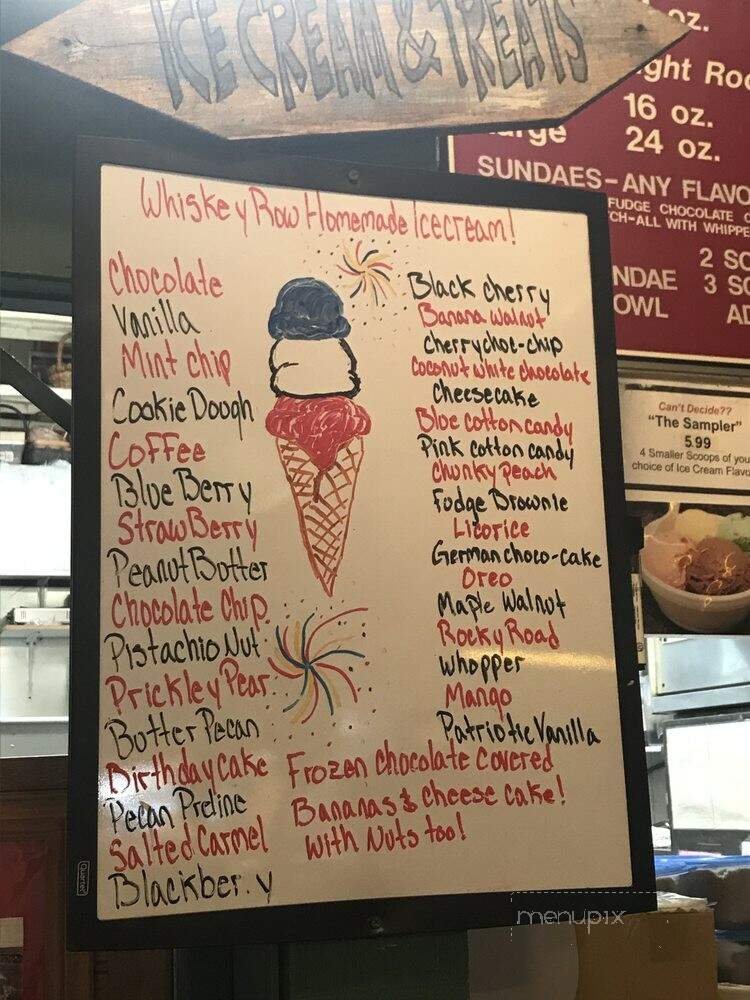 ICE CREAM & TREATS
oz.
ght Roc
16 oz.
24 oz.
SUNDAES-ANY FLAVO
FUDGE CHOCOLATE
CH-ALL WITH WHIPPE
2 SC
NDAE 3 SC
OWL AD
Can't Decide??
"The Sampler"
5.99
4 Smaller Scoops of you
choice of Ice Cream Flavo
Whiskey Row Homemade Icecream!
Chocolate
Vanilla
Mint chip
Cookie Dough
Coffee
Blue Berry
StrawBerry
Peanut Butter
Chocolate Chip
Pistachio Nut
Prickley Pear
Botter Pecan
Birthday Cake
Pecan Preline
Salted Carmel
Blackber.y
Black cherry
Banana walnut
cherry choc-chip
Coconut white chocolate
Cheesecake
Blue cotton candy
Pink cotton candy
Chunky Peach
Fudge Brownie
Licorice
German choco-cake
Oreo
Maple Walnut
Rocky Road
Whopper
Mango
Patriotic Vanilla
Frozen Chocolate Covered
Bananas & Cheese cake!
With Nuts too!
Quartet
menupix